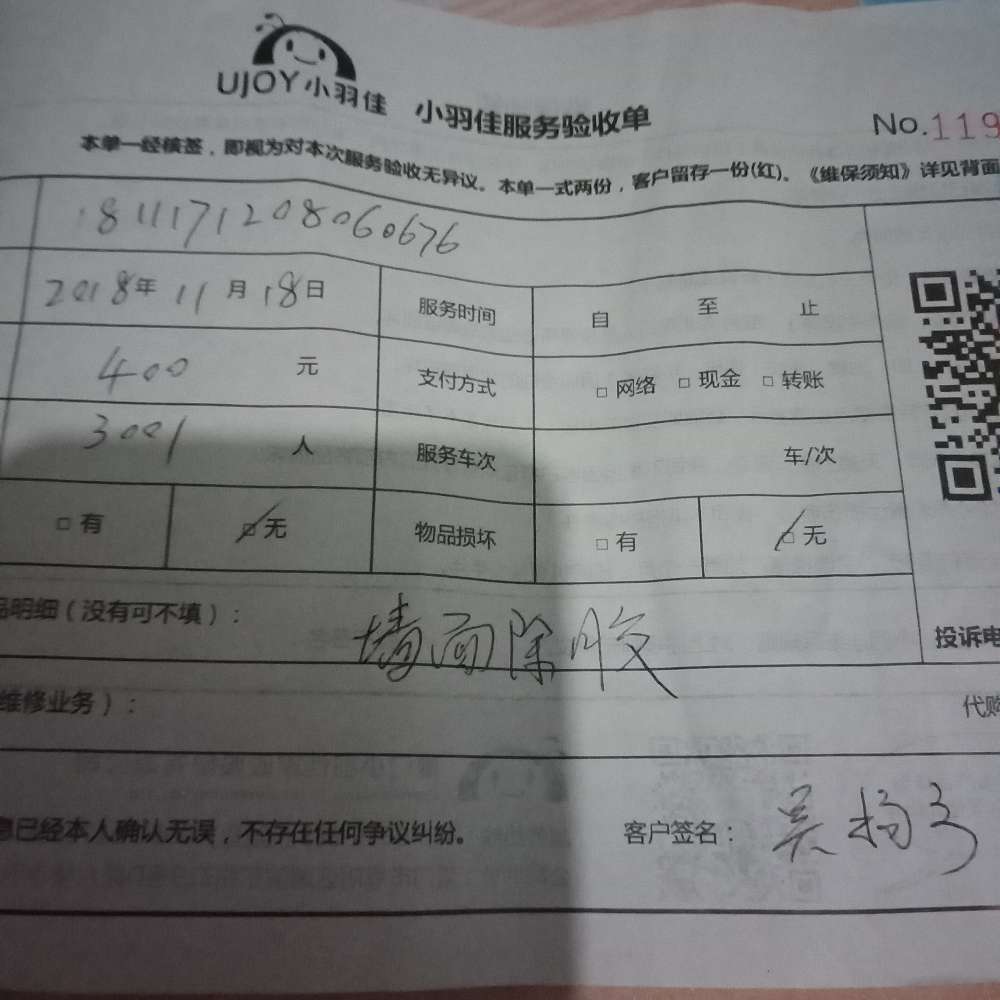 UJOY小羽佳 小羽佳服务验收单 No.119
本单一经核签，即视为对本次服务验收无异议。本单一式两份，客户留存一份(红)。《维保须知》详见背面
181117120806 0676
2018年 11月 18日 服务时间 自 至 止
400 元 支付方式 □ 网络 □ 现金 □ 转账
3001 人 服务车次 车/次
□ 有 □ 无 物品损坏 □ 有 □ 无
品明细（没有可不填）： 墙面除胶 投诉电
维修业务）： 代购
息已经本人确认无误，不存在任何争议纠纷。 客户签名：